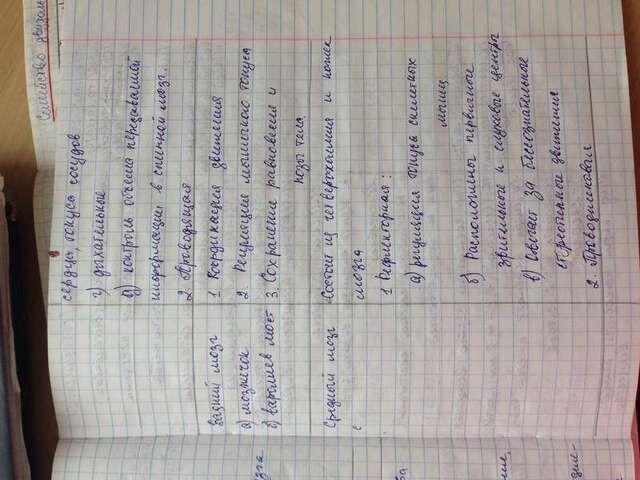 Семейство двудоль
сердца, тонуса сосудов
г) дыхательные
д) контроль объема передаваемой
информации в спинной мозг.
2. Проводящая
Задний мозг
а) мозжечок
б) варолиев мост
1 Координация движения
2. Регуляция мышечного тонуса
3. Сохранение равновесия и
позы тела
Средний мозг
Состоит из четверохолмия и ножек
мозга
1 Рефлекторная:
а) регуляция тонуса скелетных
мышц
б) Расположены первичные
зрительные и слуховые центры
в) Отвечает за бессознательные
стереотипные движения
2. Проводниковая